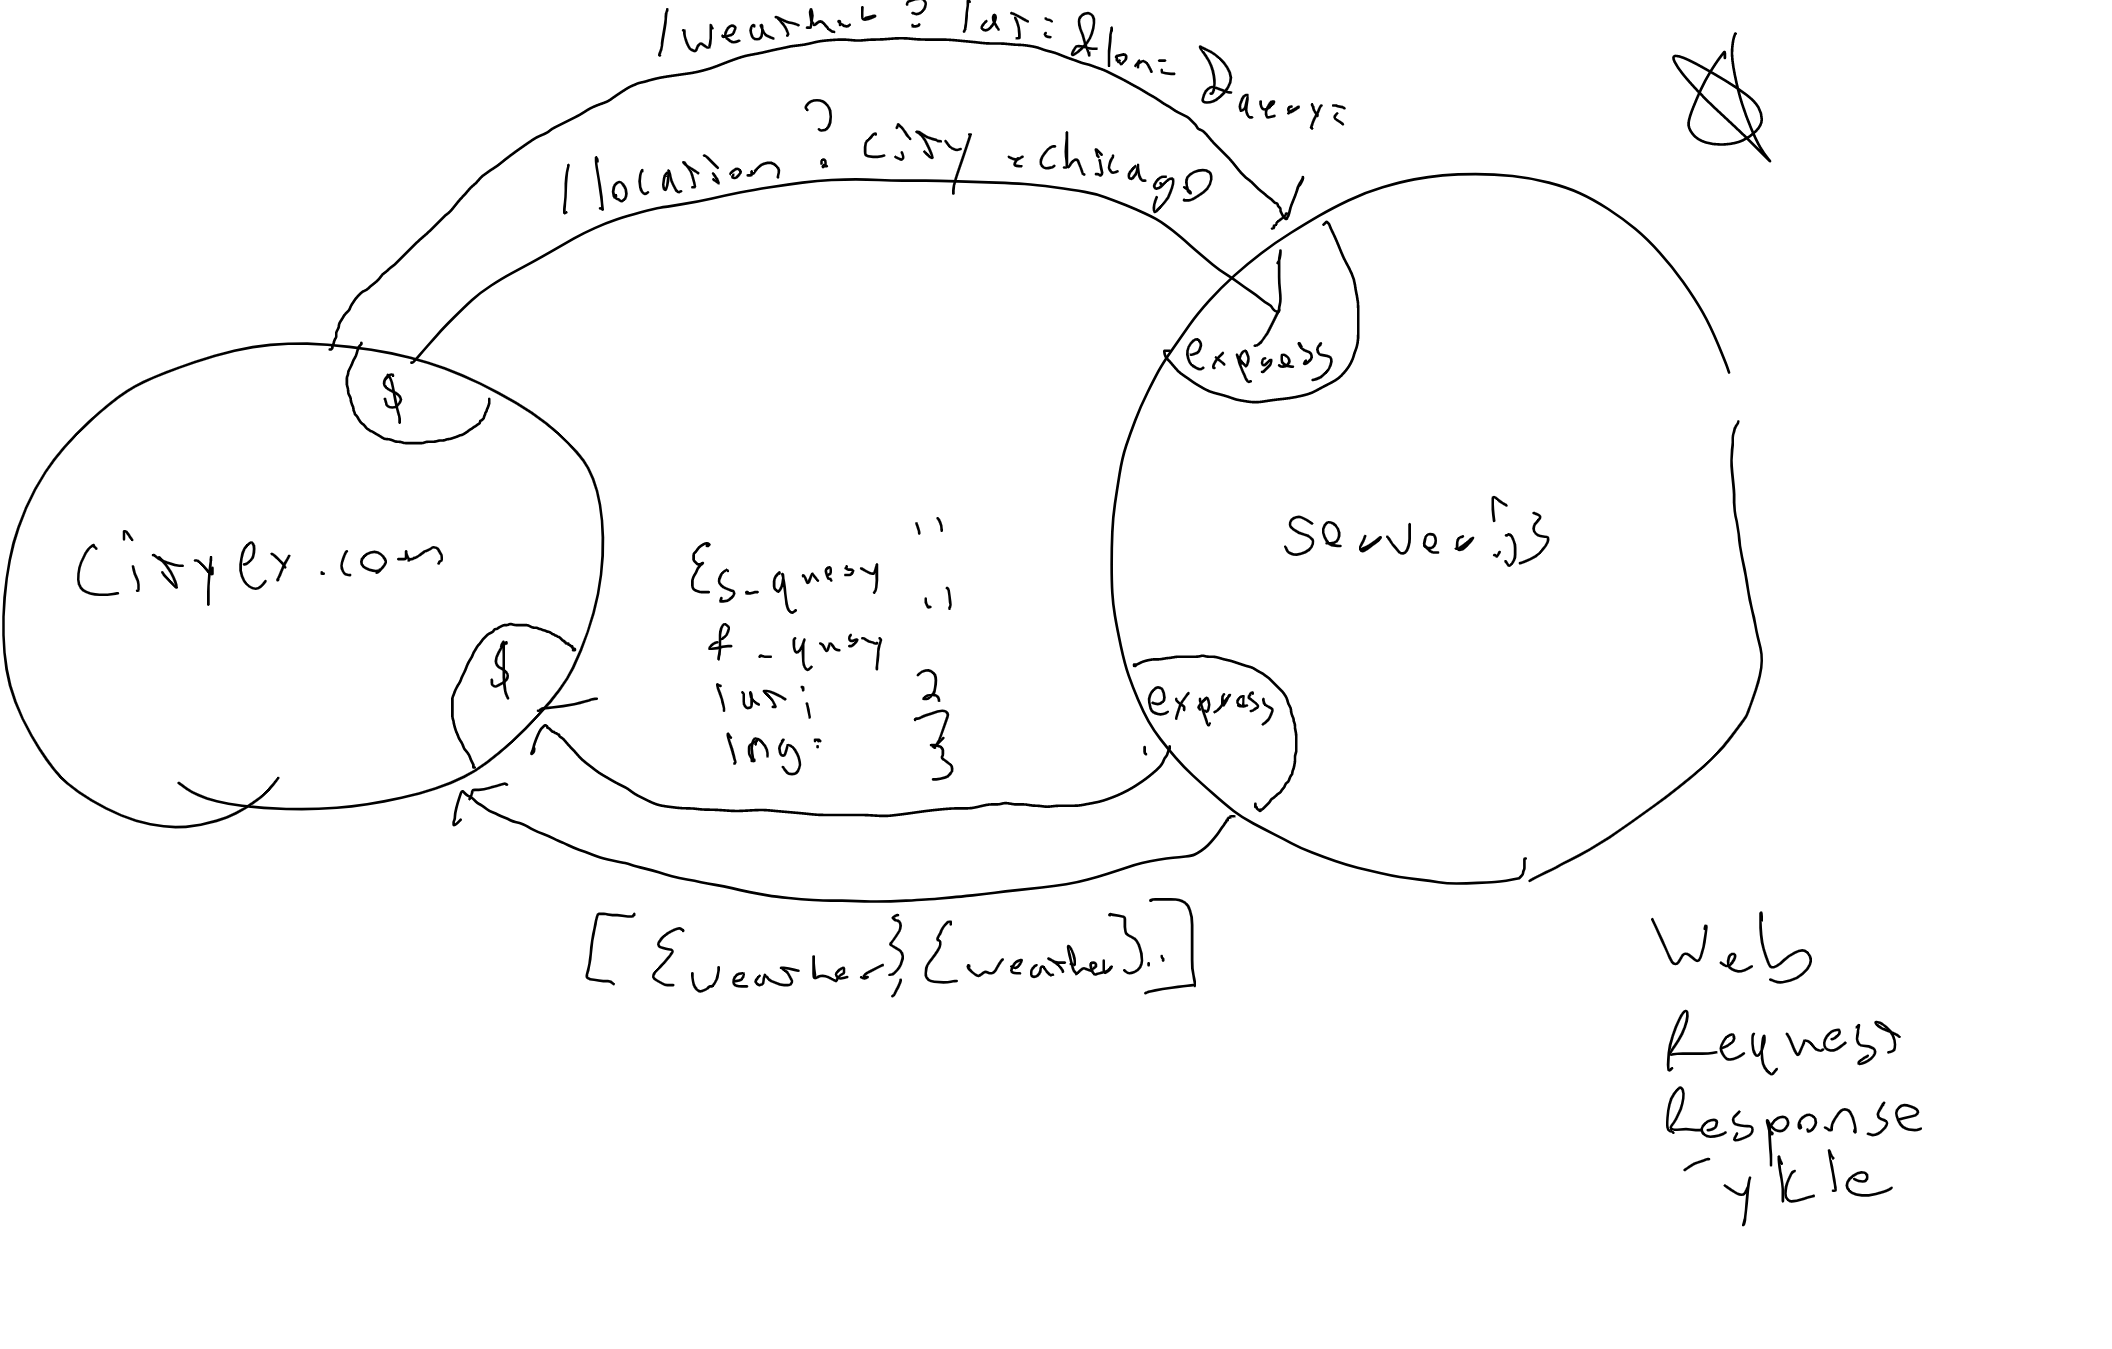 /weather ? lat= &lon=
/location ? city = chicago
$
express
Cityex.com
server.js
{s_query ""
f_query ""
lat: 2
lng: 3
$
express
[{weather},{weather}..]
Web
Request
Response
ykle